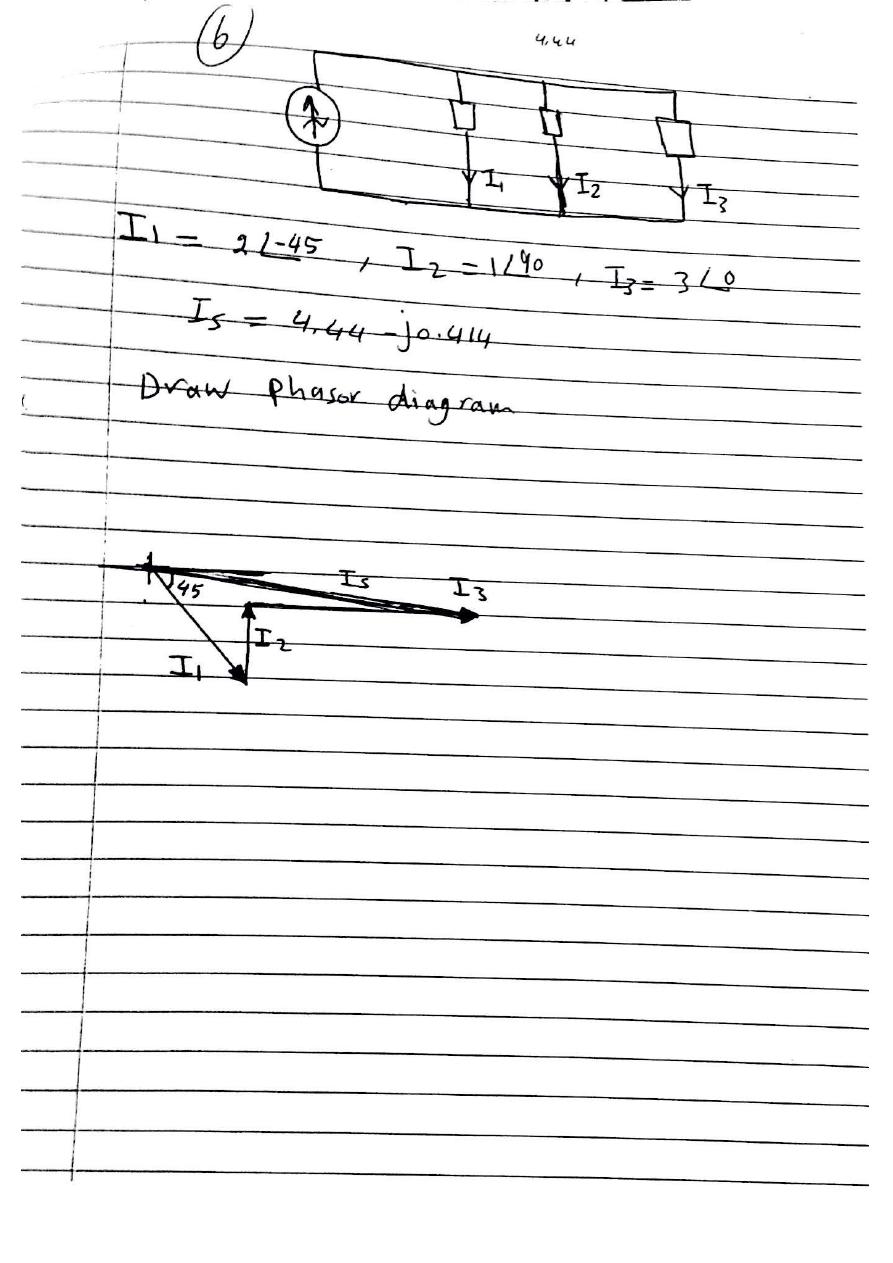 6
4.44
I1 I2 I3
I1 = 2∠-45 , I2 = 1∠90 , I3 = 3∠0
Is = 4.44 - j0.414
Draw phasor diagram
45 Is I3
I2
I1